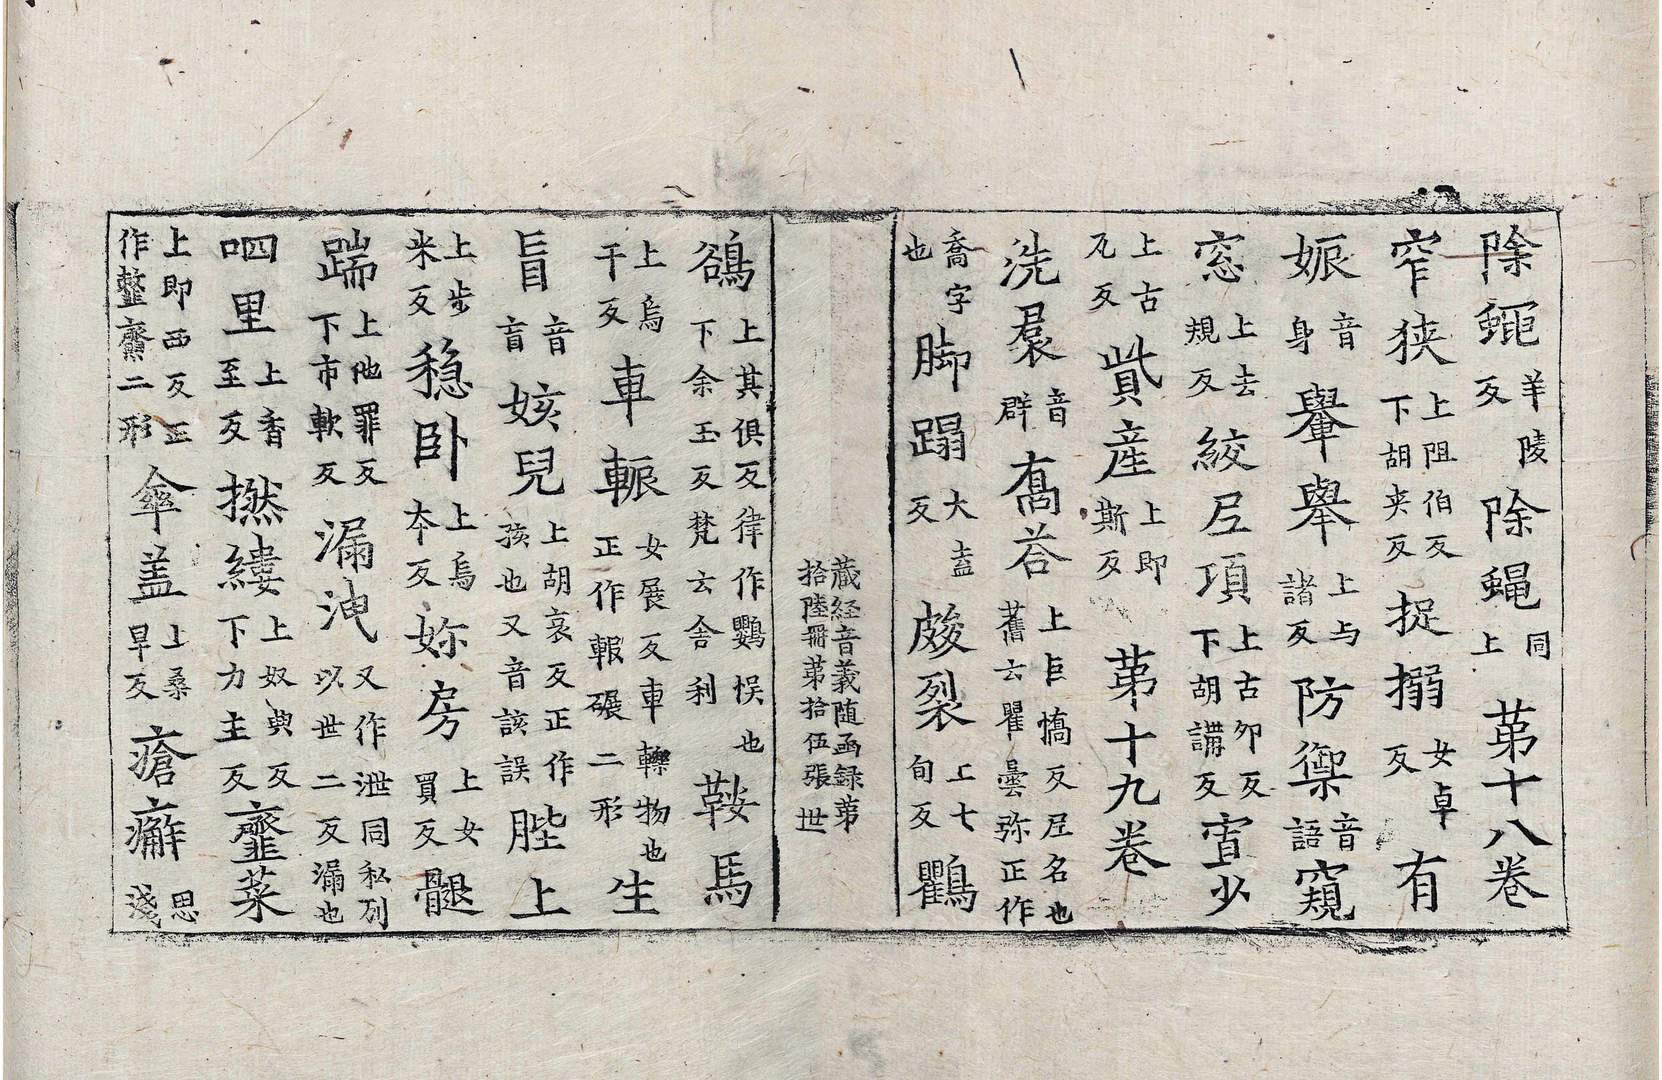 除蠅羊陵反除蝇同上苐十八卷
窄狭上阻伯反下胡夹反捉搦女卓反有
娠音身轝舉上与諸反防禦音語窺
窓上去規反絞𡰱項上古夘反下胡講反宐少
上古瓦反貲産上即斯反苐十九卷
洗裠音群髙荅上巨憍反𡰱名也舊云瞿曇弥正作
喬字也脚蹋大盍反皴裂上七旬反鸜
蔵経音義随函録苐
拾陸冊苐拾伍張世
鵒上其俱反下余玉反律作鸚悮也梵云舍利鞍馬
上烏干反車輾女展反車轢物也正作報碾二形生
盲音盲姟兒上胡哀反正作孩也又音該誤䏶上
上步米反穏卧上烏本反妳房上女買反髋
踹上他罪反下市軟反漏洩又作泄同私列以世二反漏也
呬里上香至反撚縷上奴典反下力主反虀菜
上即西反正作虀齏二形傘盖上桑早反瘡癬思淺